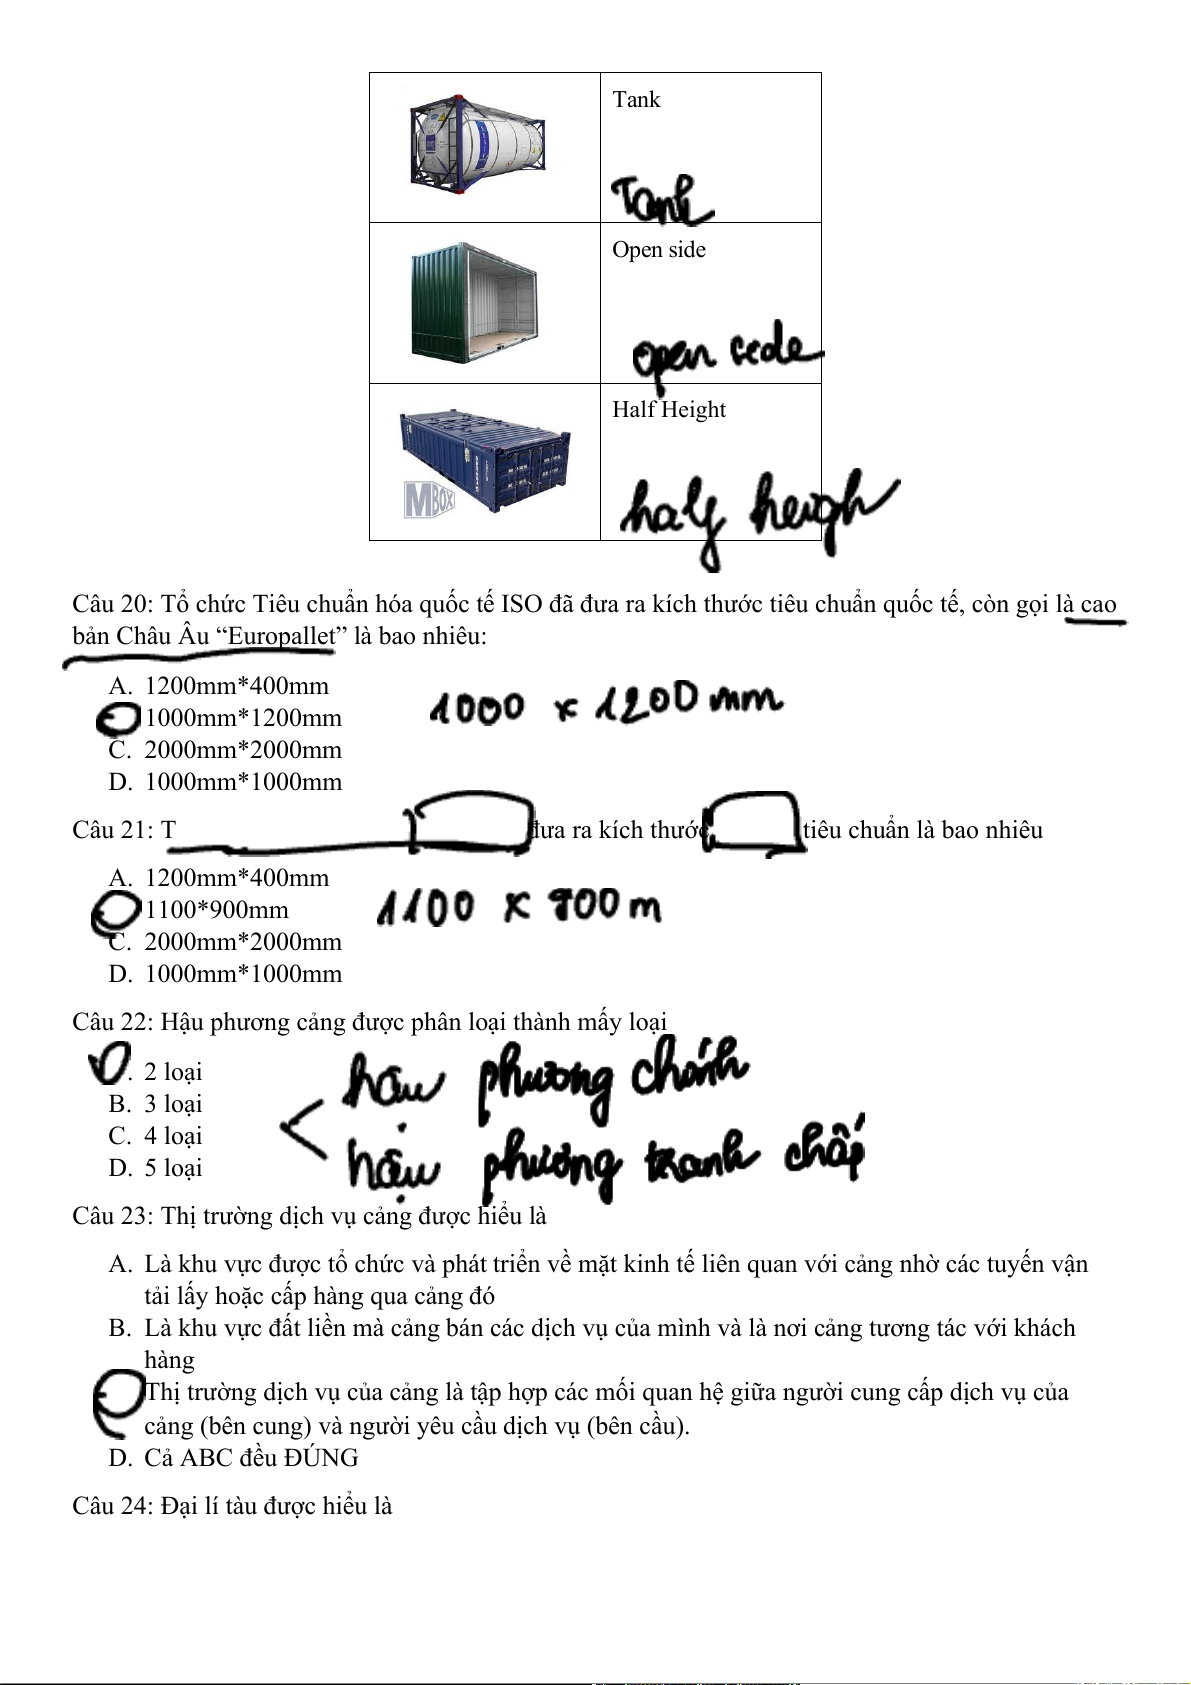 Tank
Tank
Open side
open sede
Half Height
MBOX
haly heigh
Câu 20: Tổ chức Tiêu chuẩn hóa quốc tế ISO đã đưa ra kích thước tiêu chuẩn quốc tế, còn gọi là cao
bản Châu Âu “Europallet” là bao nhiêu:
A. 1200mm*400mm
1000mm*1200mm
1000 x 1200 mm
C. 2000mm*2000mm
D. 1000mm*1000mm
Câu 21: T đưa ra kích thước tiêu chuẩn là bao nhiêu
A. 1200mm*400mm
1100*900mm
1100 x 900 m
C. 2000mm*2000mm
D. 1000mm*1000mm
Câu 22: Hậu phương cảng được phân loại thành mấy loại
2 loại
hậu phương chính
B. 3 loại
C. 4 loại
hậu phương tranh chấp
D. 5 loại
Câu 23: Thị trường dịch vụ cảng được hiểu là
A. Là khu vực được tổ chức và phát triển về mặt kinh tế liên quan với cảng nhờ các tuyến vận
tải lấy hoặc cấp hàng qua cảng đó
B. Là khu vực đất liền mà cảng bán các dịch vụ của mình và là nơi cảng tương tác với khách
hàng
Thị trường dịch vụ của cảng là tập hợp các mối quan hệ giữa người cung cấp dịch vụ của
cảng (bên cung) và người yêu cầu dịch vụ (bên cầu).
D. Cả ABC đều ĐÚNG
Câu 24: Đại lí tàu được hiểu là